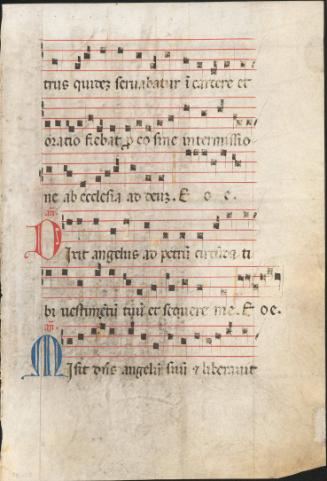 trus quidez seruabatur i carcere et
oratio fiebat p eo sine intermissio
ne ab ecclesia ad deuz. E o e.
an
Dixit angelus ad petru circuda ti
bi uestimetu tuu et sequere me. E o e.
an
Misit dns angelu suu & liberauit